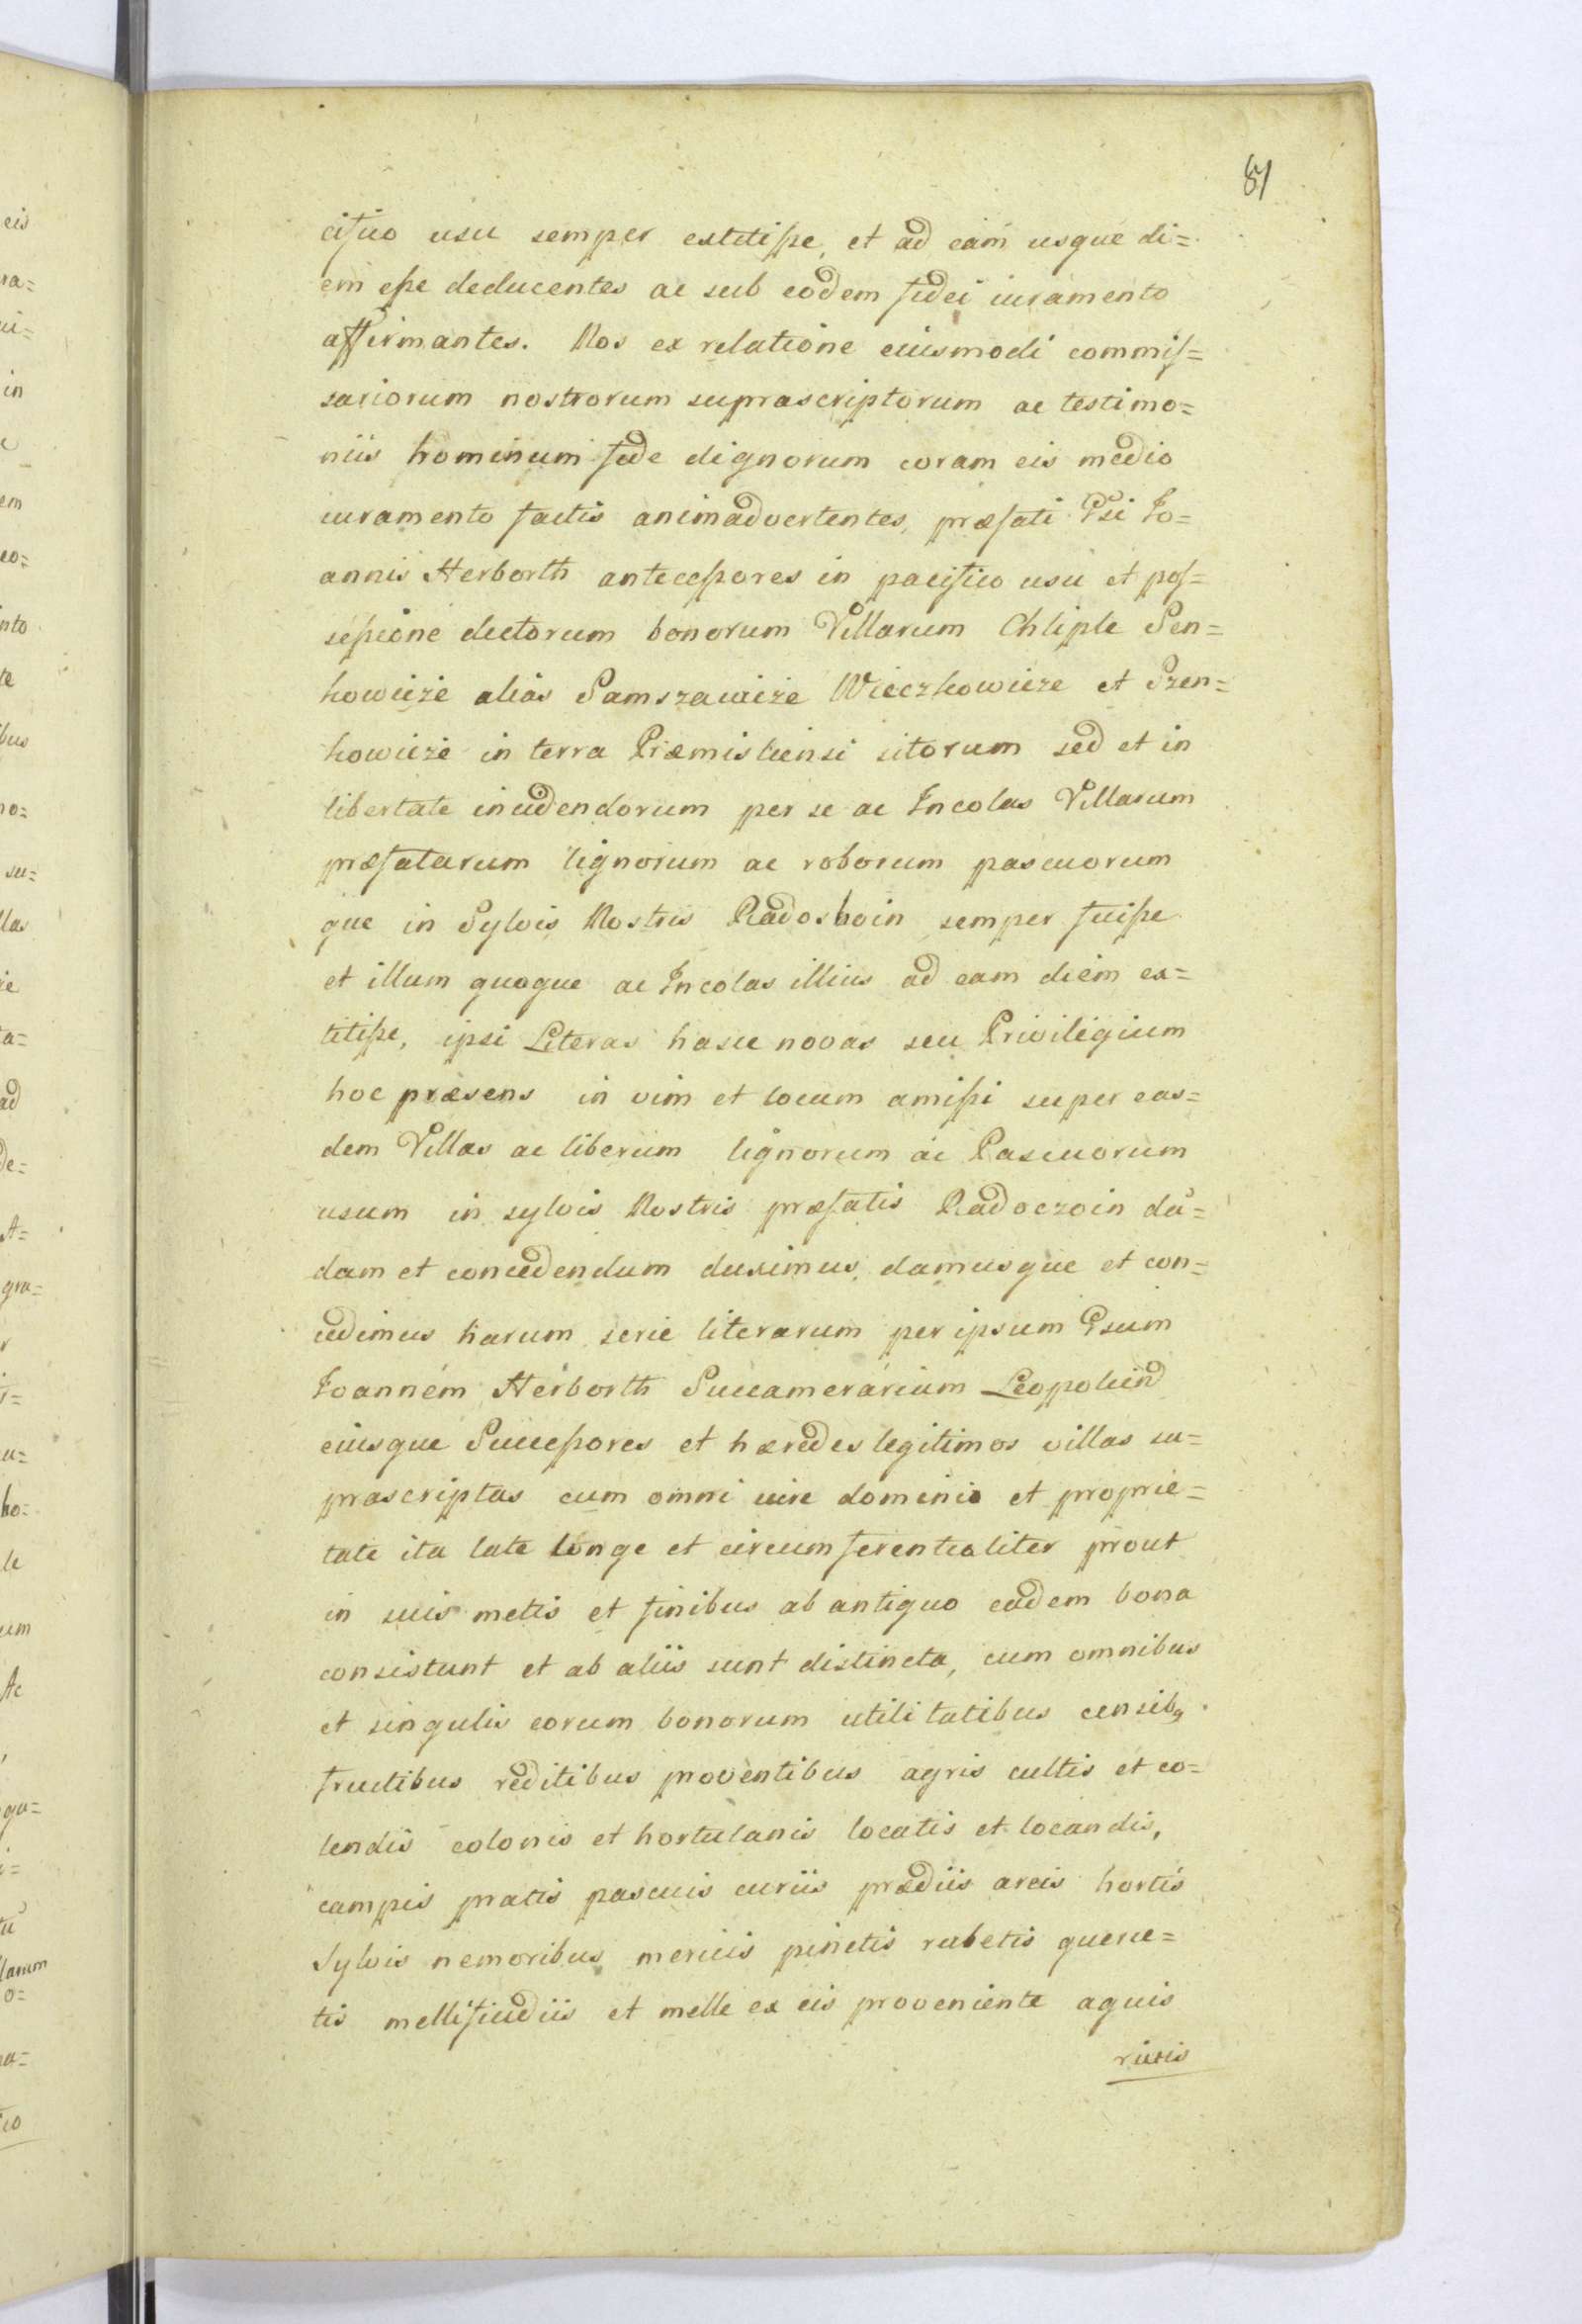 87
cifico usu semper extitisse, et ad eam usque di=
em esse deducentes ac sub eodem fidei iuramento
affirmantes. Nos ex relatione eiusmodi commis=
sariorum nostrorum suprascriptorum ac testimo=
niis hominum fide dignorum coram eis medio
iuramento factis animadvertentes, præfati Gsi Jo=
annis Herborth antecessores in pacifico usu et pos=
sessione dictorum bonorum Villarum Chliple Sen=
kowicze alias Samszawicze Wieczkowicze et Szen=
kowicze in terra Præmisliensi sitorum sed et in
libertate incidendorum per se ac Incolas Villarum
præfatarum lignorum ac roborum pascuorum
que in Sylvis Nostris Radoshoin semper fuisse
et illum quoque ac Incolas illius ad eam diem ex=
titisse, ipsi Literas hasce novas seu Privilegium
hoc præsens in vim et locum amissi super eas=
dem Villas ac liberum lignorum ac Pascuorum
usum in sylvis Nostris præfatis Radoczoin da=
dam et concedendum duximus, damusque et con=
cedimus harum serie literarum per ipsum Gsum
Joannem Herborth Succamerarium Leopoliend
eiusque Successores et hæredes legitimos villas su=
prascriptas cum omni iure dominio et proprie=
tate ita late longe et circumferentialiter prout
in suis metis et finibus ab antiquo eadem bona
consistunt et ab aliis sunt distincta, cum omnibus
et singulis eorum bonorum utilitatibus censibq
fructibus reditibus proventibus agris cultis et co=
lendis colonis et hortulanis locatis et locandis,
campis pratis pascuis curiis prædiis areis hortis
Sylvis nemoribus mericis pinetis rubetis querce=
tis mellificidiis et melle ex eis proveniente aquis
rivis
eis
ra=
ui=
in
c
em
eo=
nto
te
bus
no=
su=
llas
ie
ta=
ad
de=
A=
gra=
r
u=
ho=
le
um
Ac
qu=
i=
larum
o=